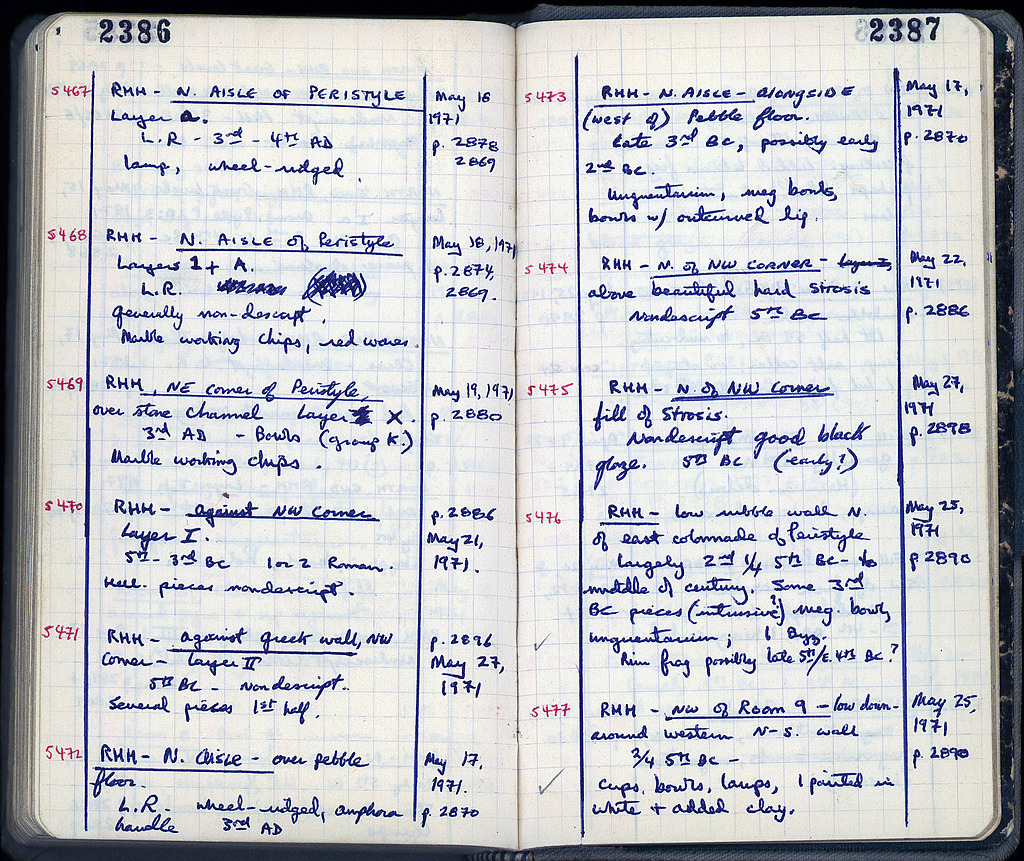 2386
S 467
RHH - N. AISLE OF PERISTYLE
May 18
1971
Layer a.
L.R - 3rd - 4th AD
p. 2878
2869
lamp, wheel-ridged.
S 468
RHH - N. AISLE of Peristyle
May 18, 1971
Layers 1 + A.
p. 2874,
L.R.
2869.
generally non-descript.
Marble working chips, red wares.
S 469
RHH, NE corner of Peristyle,
May 19, 1971
over stone channel Layer X.
p. 2880
3rd AD - Bowls (group K.)
Marble working chips.
S 470
RHH - against NW Corner
p. 2886
Layer I.
May 21,
5th - 3rd BC 1 or 2 Roman.
1971.
Hell. pieces nondescript.
S 471
RHH - against Greek wall, NW
p. 2896
Corner - Layer II
May 27,
5th BC - Nondescript.
1971
Several pieces 1st half.
S 472
RHH - N. Aisle - over pebble
May 17,
floor.
1971.
L.R - wheel-ridged, amphora
p. 2870
handle 3rd AD
2387
S 473
RHH - N. AISLE - alongside
May 17,
1971
(west of) Pebble floor.
p. 2870
Late 3rd BC, possibly early
2nd BC.
Unguentarium, meg bowls,
bowls w/ outturned lip.
S 474
RHH - N. of NW CORNER - Layer I,
May 22,
1971
above beautiful hard Strosis
p. 2886
Nondescript 5th BC
S 475
RHH - N. of NW Corner
May 27,
1971
fill of Strosis.
p. 2898
Nondescript good black
glaze. 5th BC (early?)
S 476
RHH - low rubble wall N.
May 25,
1971
of east colonnade of Peristyle
p 2890
Largely 2nd 1/4 5th BC - to
middle of century. Some 3rd
BC pieces (intrusive?) meg. bowl,
unguentarium; 1 Byz.
Rim frag possibly late 5th/E. 4th BC?
S 477
RHH - NW of Room 9 - low down -
May 25,
1971
around western N-S. wall
p. 2890
3/4 5th BC -
cups, bowls, lamps, 1 painted in
white + added clay.